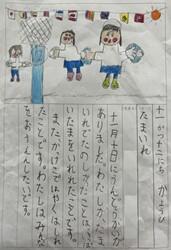 十一がつ十二にち かようび
たまいれ
十一月十日にうんどうかいが
ありました。わたしが、たま
いれでたのしかったことは、
いたまをいれれたことです。
またかけこではやくはしれ
たことです。わたしはみんな
をおうえんしたいです。